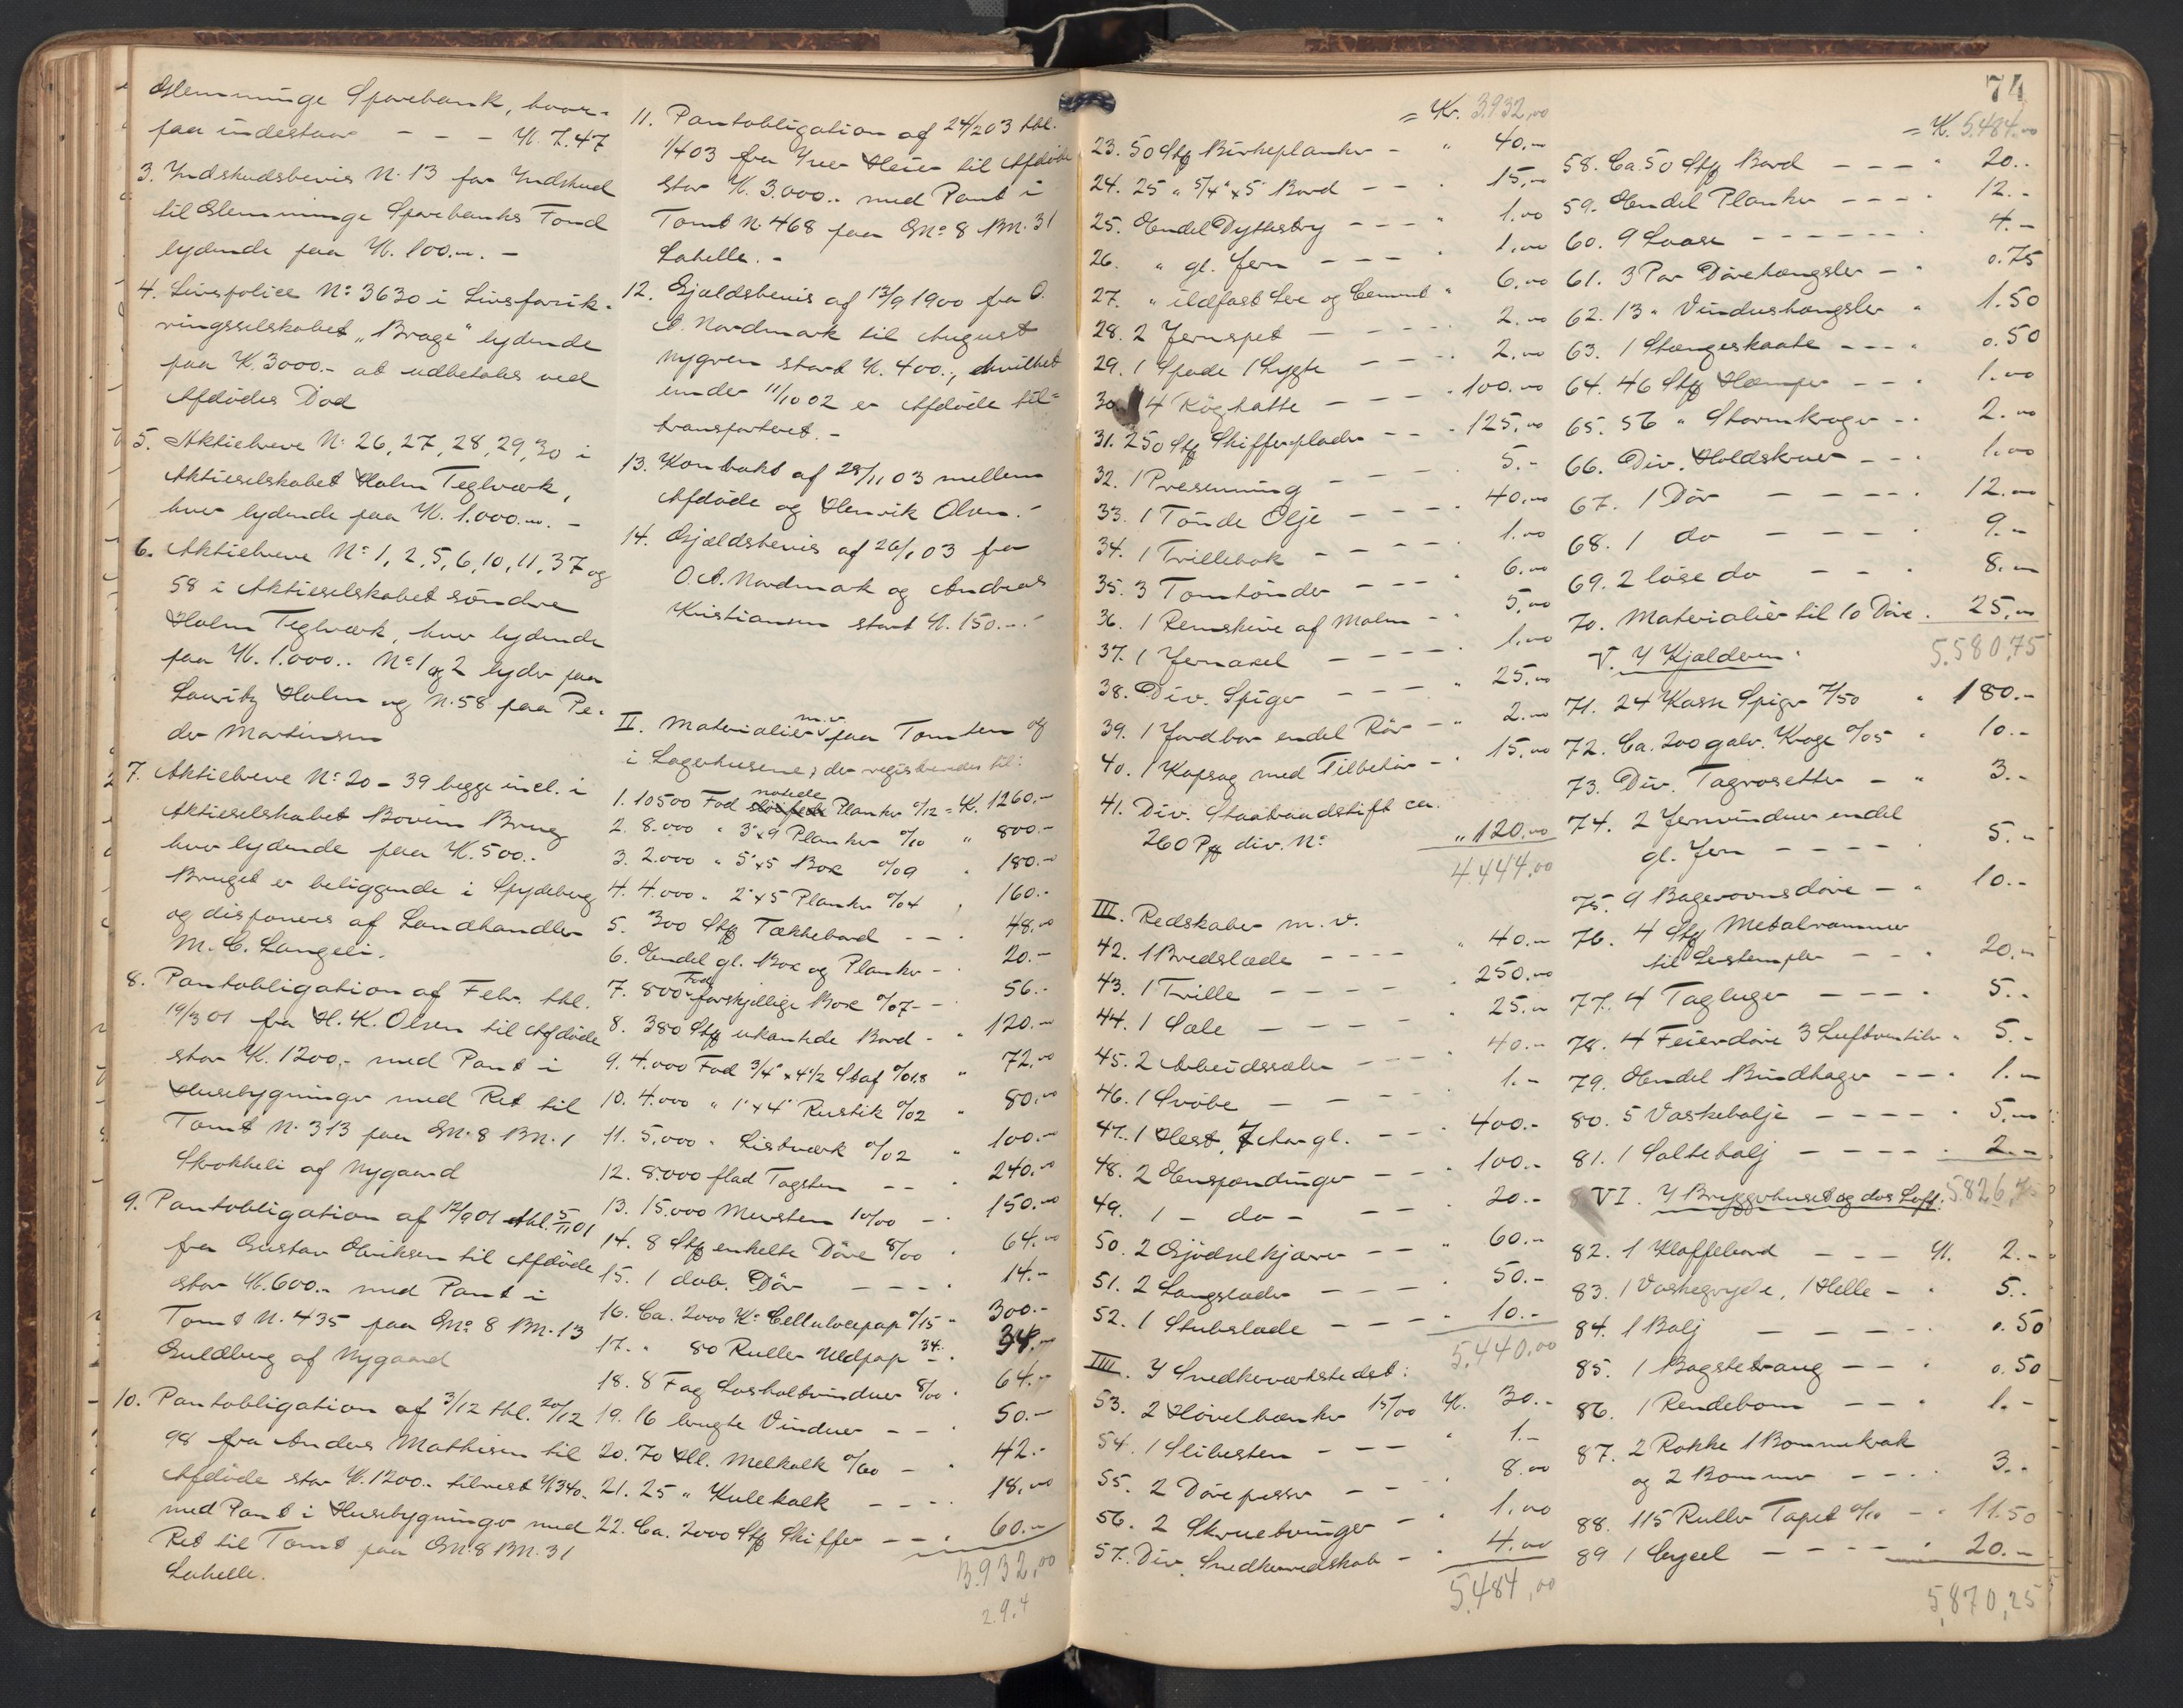 Glemminge Sparebank, hvor-
paa indestaar - - - K. 7.47
3. Indskudsbevis N. 13 for Indskud
til Glemminge Sparebanks Fond
lydende paa K. 100.00. -
4. Livspolice No 3630 i Livsforsik-
ringsselskabet „Brage" lydende
paa K. 3000.- at udbetales ved
Afdödes Död
5. Aktiebreve N. 26, 27, 28, 29, 30 i
Aktieselskabet Holm Teglverk,
hver lydende paa K. 1.000.00. -
6. Aktiebreve No 1, 2, 5, 6, 10, 11, 37 og
58 i Aktieselskabet söndre
Holm Teglverk, hver lydende
paa K. 1.000.. No 1 og 2 lyder paa
Lauritz Holm og N. 58 paa Pe-
der Martinsen
7. Aktiebreve No 20 - 39 begge incl. i
Aktieselskabet Bovim Brug
hver lydende paa K. 500..
Bruget er beliggende i Spydeberg
og disponeres af Landhandler
M. C. Langeli.
8. Pantobligation af Febr. thl.
19/3 01 fra H. K. Olsen til Afdöde
stor K. 1200,- med Pant i
Husebygninger med Ret til
Tomt N. 313 paa GN. 8 BN. 1
Skokkeli af Nygaard
9. Pantobligation af 12/9 01 thl. 5/11 01
fra Gustav Eriksen til Afdöde
stor K. 600.. med Pant i
Tomt N. 435 paa GNo 8 BN. 13
Guldberg af Nygaard
10. Pantobligation af 3/12 thl. 20/12
98 fra Anders Mathisen til
Afdöde stor K. 1200.. tilrest K 340.
med Pant i Husebygninger med
Ret til Tomt paa GN. 8 BN. 31
Labelle.
11. Pantobligation af 24/2 03 thl.
1/4 03 fra Iver Heier til Afdöde
stor K. 3.000.. med Pant i
Tomt N. 468 paa GNo 8 BN. 31
Labelle. -
12. Gjældsbevis af 13/9 1900 fra O.
A. Nordmark til August
Nygren stort K. 400., hvilket
under 11/10 02 er Afdöde til-
transporteret. -
13. Kontrakt af 28/11 03 mellem
Afdöde og Henrik Olsen. -
14. Gjældsbevis af 26/1 03 fra
O. A. Nordmark og Andreas
Kristiansen stort K. 150.-.
II. Materialier m.v. paa Tomten og
i Lagerhusene; der registreredes til:
1. 10500 Fod Planker %12 = K. 1260.-
2. 8.000 " 3"x9 Planker %10 " 800.-
3. 2.000 " 5"x5 Box %9 " 180.-
4. 4.000 " 2"x5 Planker %4 " 160.-
5. 300 Stk Tækkebord - - . 48.00
6. Endel gl. Box og Planker - . 20.-
7. 800 Fod forskjellige Box %7 - 56.-
8. 380 Stk ukantede Bord - . 120.-
9. 4.000 Fod 3/4" x 4 1/2 Staf %1.8 " 72.00
10. 4.000 " 1"x4" Rustik %2 " 80.00
11. 5.000 " Listverk %2 " 100.-
12. 8.000 flad Tagsten - - . 240.00
13. 15.000 Mursten 10/00 - . 150.00
14. 8 Stk enkelte Döre 8/00 . 64.00
15. 1 dob. Dör - - - . 14.-
16. Ca. 2000 Ko Cellulocepap %15 " 300.-
17. " 80 Ruller Uldpap 34.- . 34.00
18. 8 Fag Losholtvinduer 8/00 . 64.-
19. 16 brugte Vinduer - - . 50.-
20. 70 Hl. Melkalk %60 - . 42.-
21. 25 " Kulekalk - - - . 18.00
22. Ca. 2000 Stk Skiffer - - . 60.-
3.932,00
2.9.4
= Kr. 3932,00
23. 50 Stk Birkeplanker - " 40.-
24. 25 " 5/4" x 5" Bord - - . 15.00
25. Endel Dyttestry - - - " 1.00
26. " gl. Jern - - - . 1.00
27. " ildfast Ler og Cement " 6.00
28. 2 Jernspet - - - . 2.00
29. 1 Spade 1 Lygte - - . 2.00
30. 4 Röghatte - - - . 100.00
31. 250 Stk Skifferplader - - . 125.00
32. 1 Presenning - - - . 5.-
33. 1 Tönde Olje - - - . 40.00
34. 1 Trillebok - - - . 1.00
35. 3 Tomtönder - - - . 6.00
36. 1 Remskive af Malm - . 5.00
37. 1 Jernaxel - - - . 1.00
38. Div. Spiger - - - " 25.00
39. 1 Jordbor endel Rör - " 2.00
40. 1 Kapsag med Tilbehör - . 15.00
41. Div. Staaltraadstift ca.
260 Pk div. No " 120.00
4.444,00
III. Redskaber m. v.
42. 1 Bredslæde - - - - " 40.-
43. 1 Trille - - - - . 250.00
44. 1 Sæle - - - - . 25.-
45. 2 Arbeidssæler - - - . 40.-
46. 1 Svöbe - - - - 1.-
47. 1 Hest, 7 Aar gl. - - . 400.-
48. 2 Enspændinger - - . 100.-
49. 1 - do - - - . 20.-
50. 2 Gjödselkjærrer - - " 60.-
51. 2 Langslæder - - - . 50.-
52. 1 Stubslæde - - - . 10.-
5.440.00
IIII. I Snedkerverkstedet:
53. 2 Hövelbænker 15/00 K. 30.-
54. 1 Slibesten - - - " 1.-
55. 2 Dörepresser - - . 8.00
56. 2 Skruetvinger - . 1.00
57. Div. Snedkerredskab - . 4.00
5.484,00
74
= K. 5.484.00
58. Ca. 50 Stk Bord - - - " 20..
59. Endel Planker - - - . 12.-
60. 9 Laase - - - - - - . 4.-
61. 3 Par Dörehængsler - . 0.75
62. 13 " Vindushængsler " 1.50
63. 1 Stangeskaate - - - . 0.50
64. 46 Stk Hæmper - - . 1.00
65. 56 " Stormkroger - . 2.00
66. Div. Holdskruer - - . 1.00
67. 1 Dör - - - - . 12.00
68. 1 do - - - - . 9.-
69. 2 löse do - - . 8.00
70. Materialier til 10 Döre . 25.00
5.580,75
V. I Kjælderen:
71. 24 Kasse Spiger 7/50 " 180.-
72. Ca. 200 galv. Kroge %05 " 10.-
73. Div. Tagrosetter - " 3.-
74. 2 Jernvinduer endel
gl. Jern - - - - . 5.-
75. 9 Bagerovnsdöre - . 10.-
76. 4 Stk Metalrammer
til - - . 20.-
77. 4 Tagluger - - - . 5..
78. 4 Feierdöre 3 Luftventiler . 5.-
79. Endel Bindhager - - . 1.-
80. 5 Vaskebalje - - - - . 5.00
81. 1 Saltebalj - - - - . 2.-
VI. I Bryggerhuset og dos Loft: 5.826,75
82. 1 Klaffebord - - - K. 2.-
83. 1 Vaskegryde, 1 Helle - . 5..
84. 1 Balj - - - - . 0.50
85. 1 Bagstetraug - - . 0.50
86. 1 Rendebom - - . 1.-
87. 2 Rokke 1 Bommekrak
og 2 Bommer - - - . 3..
88. 115 Ruller Tapet %10 - . 11.50
89 1 Cycel - - - - . 20.-
5,870,25